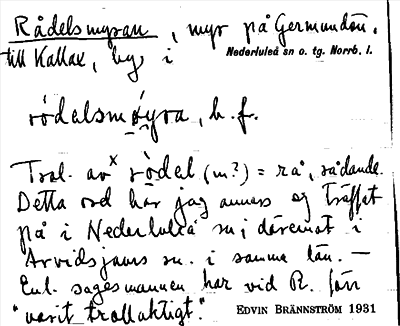 Rådelsmyran, myr på Germundön,
till Kallax, by i Nederluleå sn o. tg. Norrb. l.
rödelsmøyra, b. f.
Trol. av x rödel (m?) = rå, rådande.
Detta ord har jag annars ej träffat
på i Nederluleå sn; däremot i
Arvidsjaurs sn. i samma län. —
Enl. sagesmannen har vid R. förr
"varit trollaktigt".
EDVIN BRÄNNSTRÖM 1931